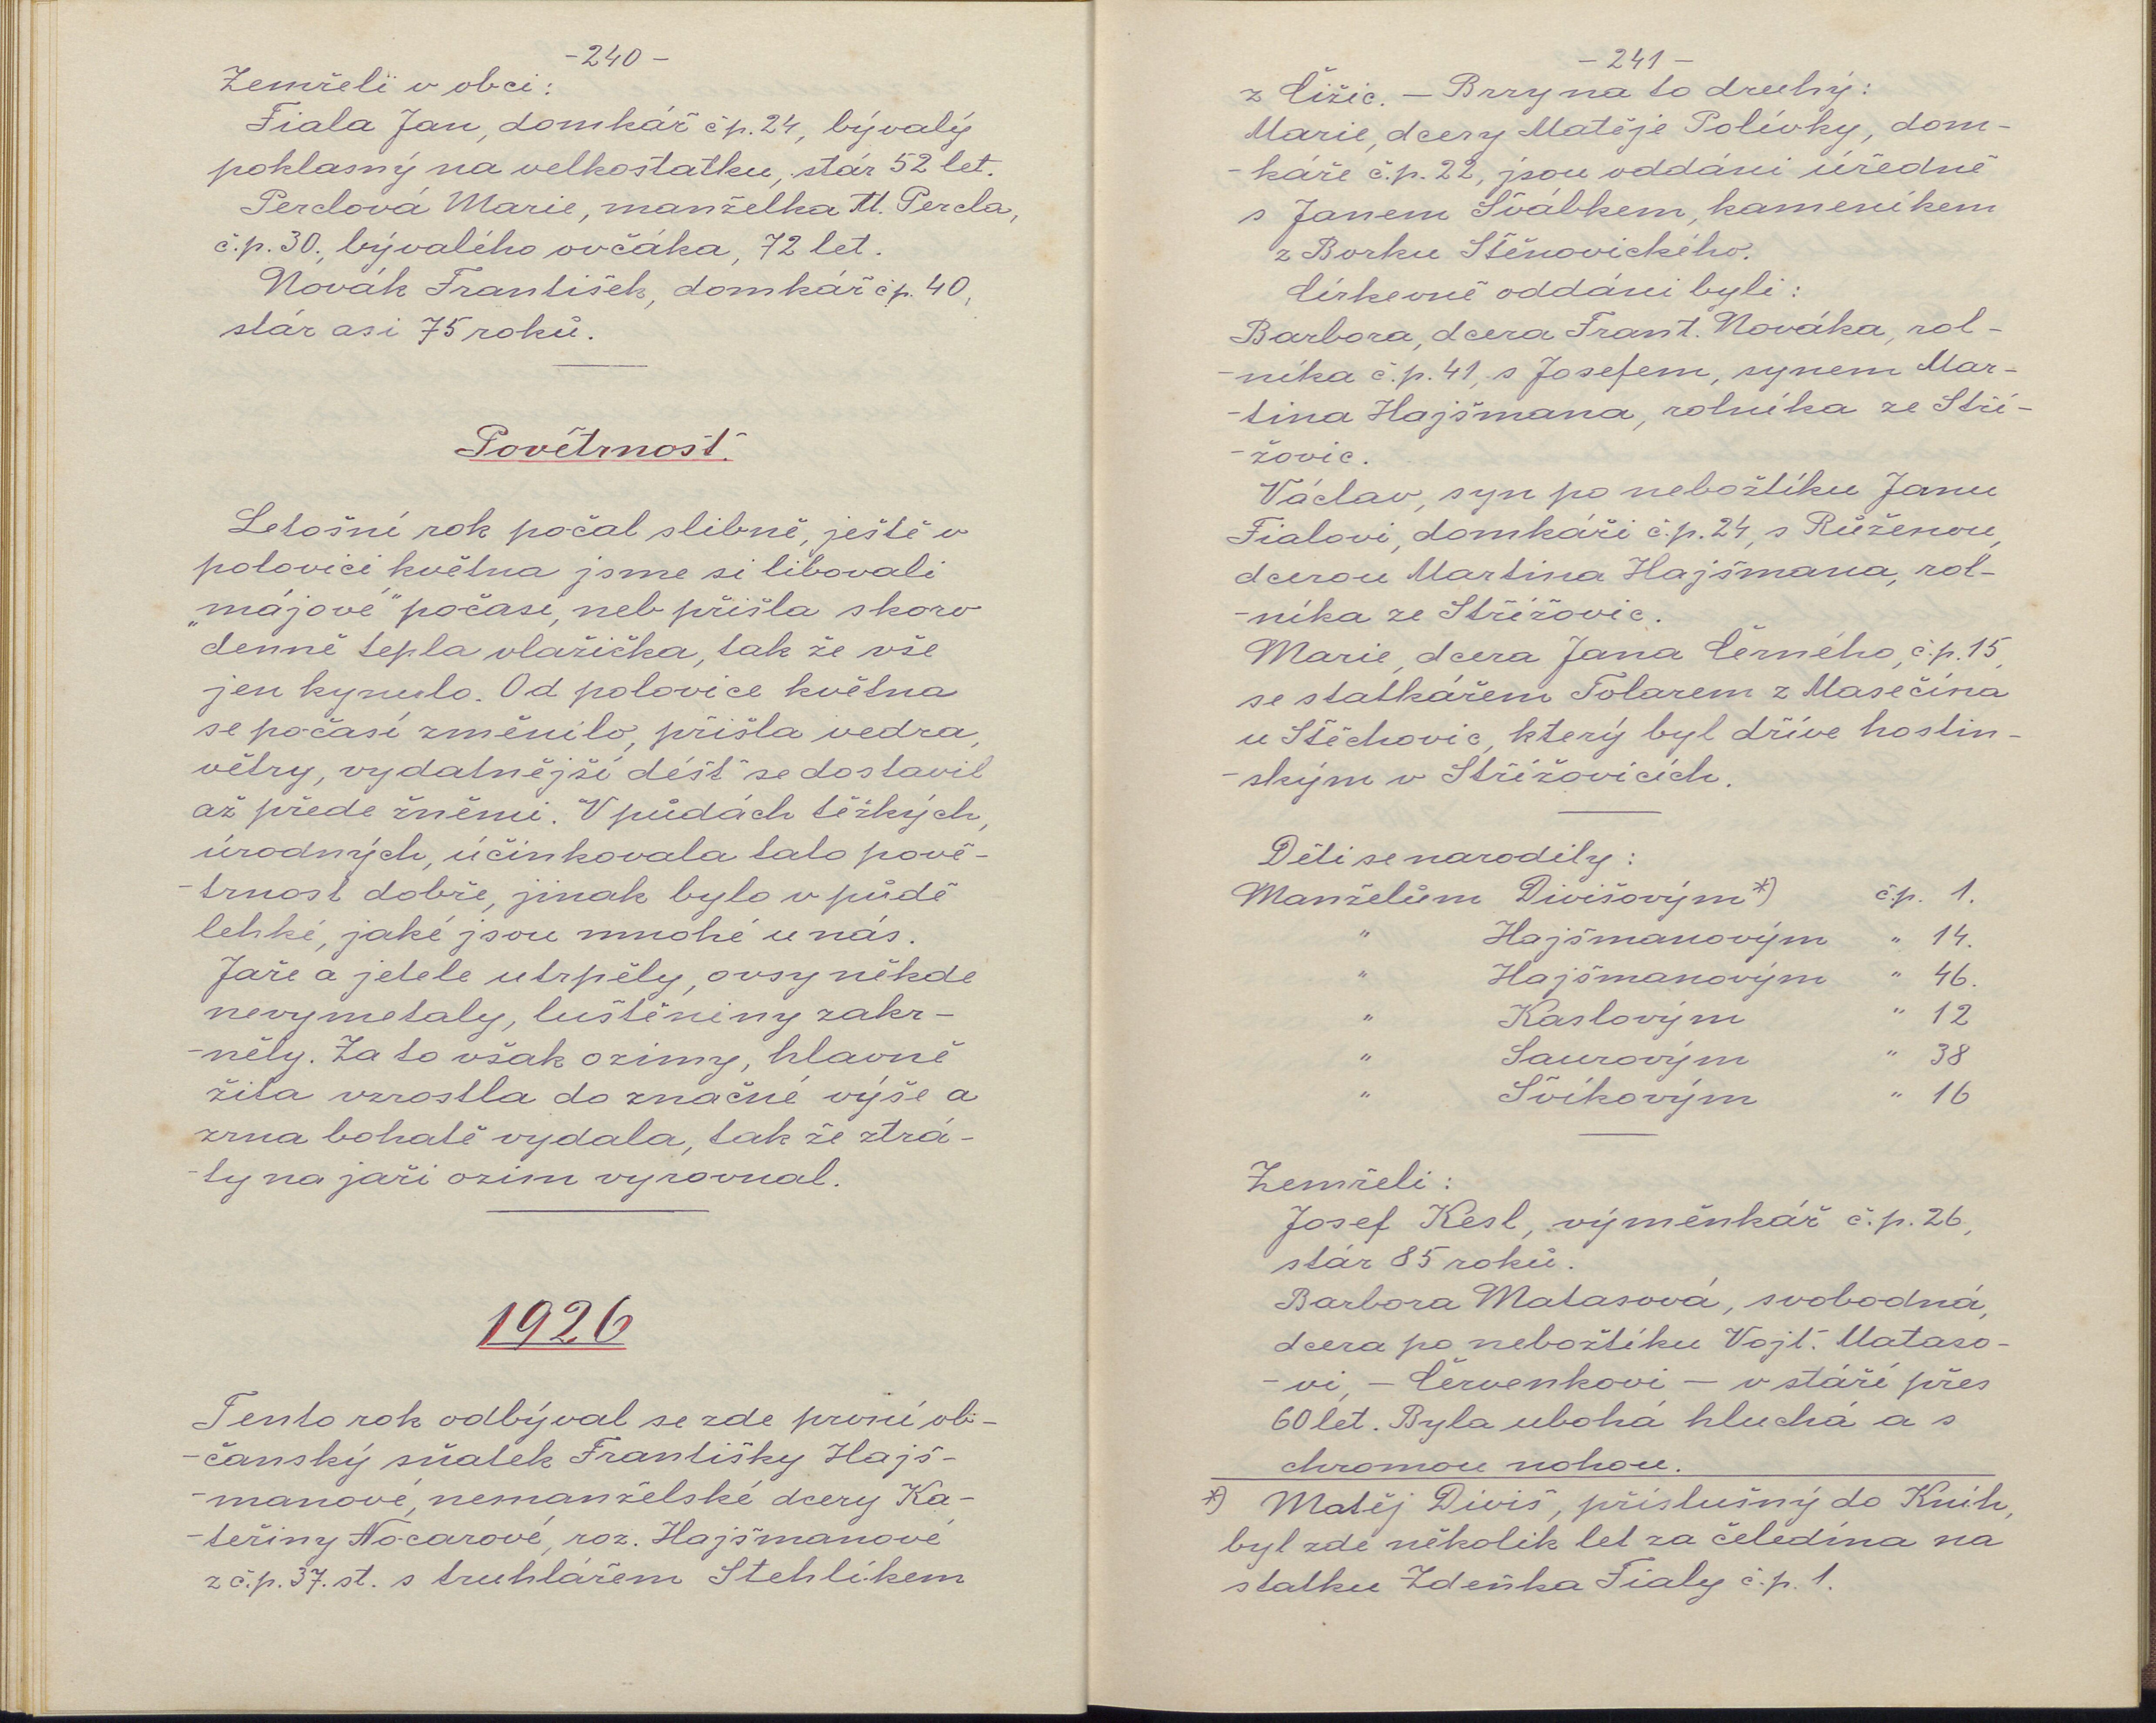 -240-
Zemřeli v obci:
Fiala Jan, domkář čp. 24, bývalý
poklasný na velkostatku, stár 52 let.
Perclová Marie, manželka M. Percla,
č.p. 30., bývalého ovčáka, 72 let.
Novák František, domkář čp. 40,
stár asi 75 roků.
Povětrnost.
Letošní rok počal slibně, ještě v
polovici května jsme si libovali
„májové" počasí, neb přišla skoro
denně teplá vlažička, tak že vše
jen kynulo. Od polovice května
se počasí změnilo, přišla vedra,
větry, vydatnější déšť se dostavil
až přede žněmi. V půdách těžkých,
úrodných, účinkovala tato pově-
-trnost dobře, jinak bylo v půdě
lehké, jaké jsou mnohé u nás.
Jaře a jetele utrpěly, ovsy někde
nevymetaly, luštěniny zakr-
-něly. Za to však ozimy, hlavně
žita vzrostla do značné výše a
zrna bohatě vydala, tak že ztrá-
-ty na jaři ozim vyrovnal.
1926
Tento rok odbýval se zde první ob-
-čanský sňatek Františky Hajš-
-manové, nemanželské dcery Ka-
-teřiny Nocarové, roz. Hajšmanové
z č.p. 37. st. s truhlářem Stehlíkem
-241-
z Čižic. - Brzy na to druhý:
Marie, dcery Matěje Polívky, dom-
-káře č.p. 22, jsou oddáni úředně
s Janem Švábkem, kameníkem
z Borku Štěnovického.
Církevně oddáni byli:
Barbora, dcera Frant. Nováka, rol-
-níka č.p. 41, s Josefem, synem Mar-
-tina Hajšmana, rolníka ze Stří-
-žovic.
Václav, syn po nebožtíku Janu
Fialovi, domkáři č.p. 24, s Růženou,
dcerou Martina Hajšmana, rol-
-níka ze Střížovic.
Marie, dcera Jana Černého, č.p. 15,
se statkářem Tolarem z Masečína
u Štěchovic, který byl dříve hostin-
-ským v Střížovicích.
Děti se narodily:
Manželům Divišovým *) čp. 1.
" Hajšmanovým " 14.
" Hajšmanovým " 46.
" Kaslovým " 12
" Saurovým " 38
" Švíkovým " 16
Zemřeli:
Josef Kesl, výměnkář č.p. 26,
stár 85 roků.
Barbora Matasová, svobodná,
dcera po nebožtíku Vojt. Mataso-
-vi, - Červenkovi - v stáří přes
60 let. Byla ubohá hluchá a s
chromou nohou.
*) Matěj Diviš, příslušný do Knih,
byl zde několik let za čeledína na
statku Zdeňka Fialy č.p. 1.